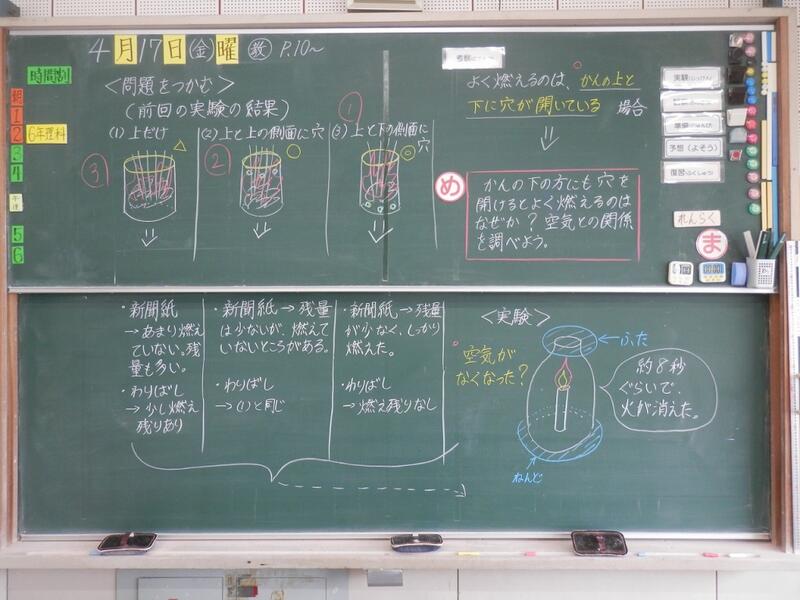 4月17日(金)曜 教 P.10〜
時間割
朝
1
2
3
4
5
6
6年理科
<問題をつかむ>
(前回の実験の結果)
(1)上だけ
③
△
(2)上と上の側面に穴
②
○
(3)上と下の側面に穴
①
◎
よく燃えるのは、かんの上と
下に穴が開いている 場合
め
かんの下の方にも穴を
開けるとよく燃えるのは
なぜか?空気との関係
を調べよう。
実験(じっけん)
準備(じゅんび)
予想(よそう)
復習(ふくしゅう)
れんらく
ま
・新聞紙
→あまり燃え
ていない。残
量も多い。
・わりばし
→少し燃え
残りあり
・新聞紙→残量
は少ないが、燃えて
いないところがある。
・わりばし
→(1)と同じ
・新聞紙→残量
が少なく、しっかり
燃えた。
・わりばし
→燃え残りなし
<実験>
空気が
なくなった?
ふた
ねんど
約8秒
ぐらいで、
火が消えた。